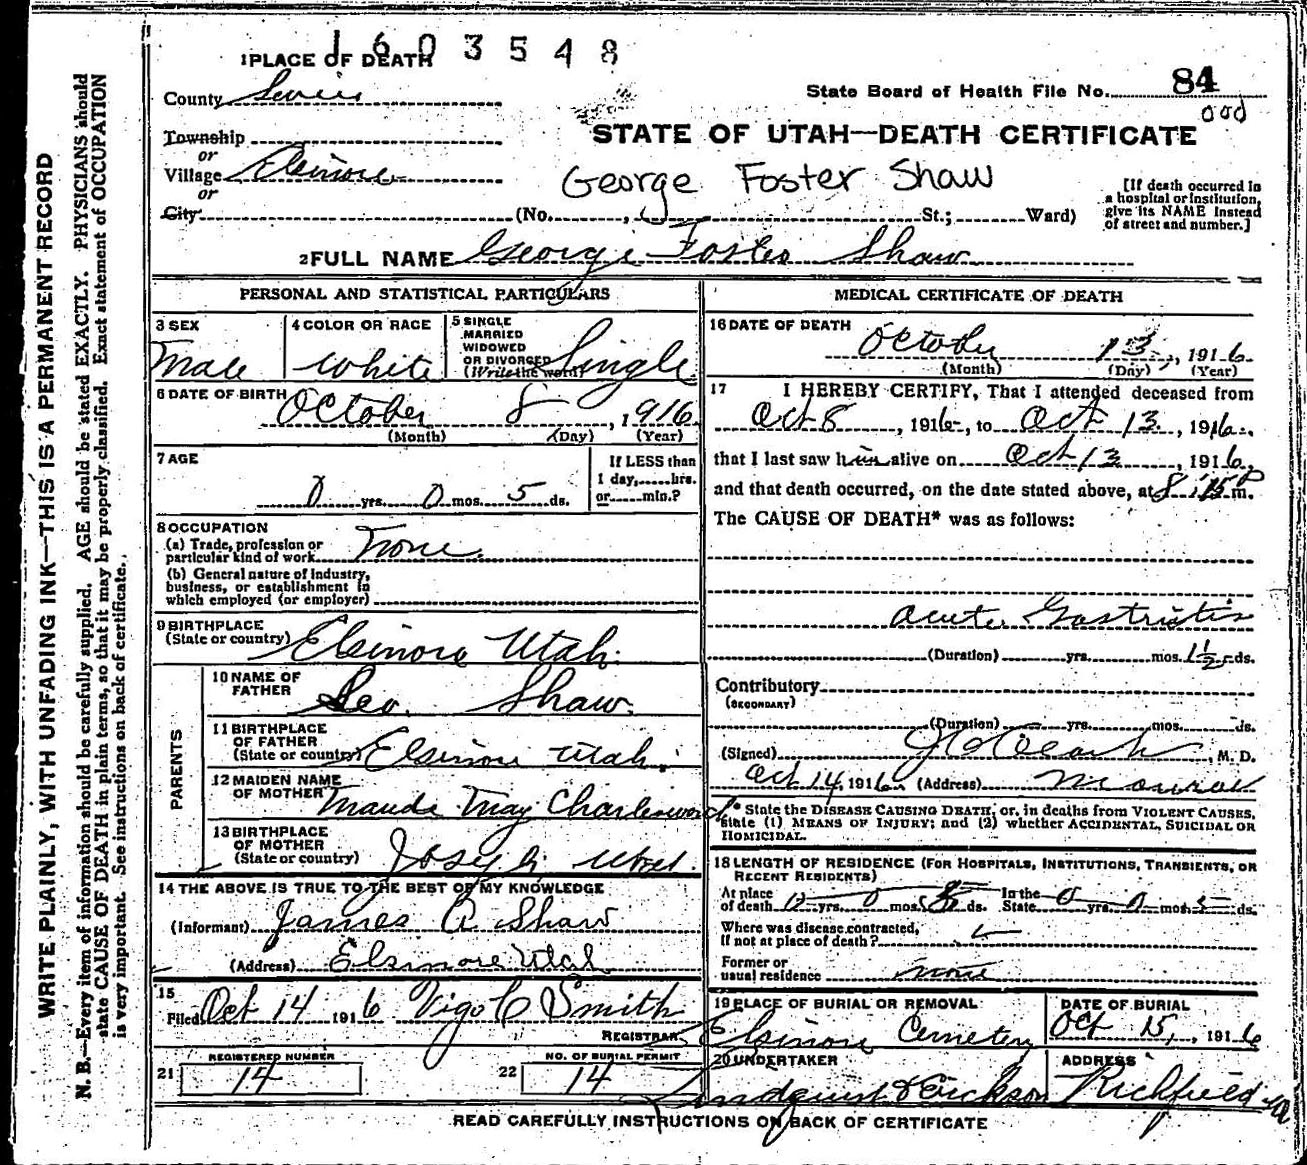 1603548
1 PLACE OF DEATH
County Sevier
State Board of Health File No. 84
Township
STATE OF UTAH—DEATH CERTIFICATE
or
Village Elsinore
George Foster Shaw
or
City (No. , St.; Ward)
[If death occurred in
a hospital or institution,
give its NAME instead
of street and number.]
2 FULL NAME George Foster Shaw
PERSONAL AND STATISTICAL PARTICULARS
3 SEX
Male
4 COLOR OR RACE
White
5 SINGLE
MARRIED
WIDOWED
OR DIVORCED
(Write the word)
Single
6 DATE OF BIRTH October 8, 1916
(Month) (Day) (Year)
7 AGE
0 yrs. 0 mos. 5 ds.
If LESS than
1 day, hrs.
or min.?
8 OCCUPATION
(a) Trade, profession or
particular kind of work None.
(b) General nature of industry,
business, or establishment in
which employed (or employer)
9 BIRTHPLACE
(State or country) Elsinore Utah.
PARENTS
10 NAME OF
FATHER Geo. Shaw.
11 BIRTHPLACE
OF FATHER
(State or country) Elsinore Utah.
12 MAIDEN NAME
OF MOTHER Maude May Charlesworth
13 BIRTHPLACE
OF MOTHER
(State or country) Joseph Utah.
14 THE ABOVE IS TRUE TO THE BEST OF MY KNOWLEDGE
(Informant) James A Shaw
(Address) Elsinore Utah
15
Filed Oct 14 1916 Vigo C Smith
REGISTRAR
REGISTERED NUMBER
21 14
NO. OF BURIAL PERMIT
22 14
MEDICAL CERTIFICATE OF DEATH
16 DATE OF DEATH
October 13, 1916
(Month) (Day) (Year)
17 I HEREBY CERTIFY, That I attended deceased from
Oct 8, 1916, to Oct 13, 1916.
that I last saw him alive on Oct 13, 1916,
and that death occurred, on the date stated above, at 8 P m.
The CAUSE OF DEATH* was as follows:
Acute Gastritis
(Duration) yrs. mos. 1½ ds.
Contributory
(SECONDARY)
(Duration) yrs. mos. ds.
(Signed) , M. D.
Oct 14, 1916 (Address) Monroe
* State the DISEASE CAUSING DEATH, or, in deaths from VIOLENT CAUSES,
state (1) MEANS OF INJURY; and (2) whether ACCIDENTAL, SUICIDAL OR
HOMICIDAL.
18 LENGTH OF RESIDENCE (FOR HOSPITALS, INSTITUTIONS, TRANSIENTS, OR
RECENT RESIDENTS)
At place
of death 0 yrs. 0 mos. ds. In the
State 0 yrs. 0 mos. 5 ds.
Where was disease contracted,
if not at place of death?
Former or
usual residence none
19 PLACE OF BURIAL OR REMOVAL
Elsinore Cemetery
DATE OF BURIAL
Oct 15, 1916
20 UNDERTAKER
Lindquist & Erickson
ADDRESS
Richfield
READ CAREFULLY INSTRUCTIONS ON BACK OF CERTIFICATE
WRITE PLAINLY, WITH UNFADING INK—THIS IS A PERMANENT RECORD
N. B.—Every item of information should be carefully supplied. AGE should be stated EXACTLY. PHYSICIANS should
state CAUSE OF DEATH in plain terms, so that it may be properly classified. Exact statement of OCCUPATION
is very important. See instructions on back of certificate.